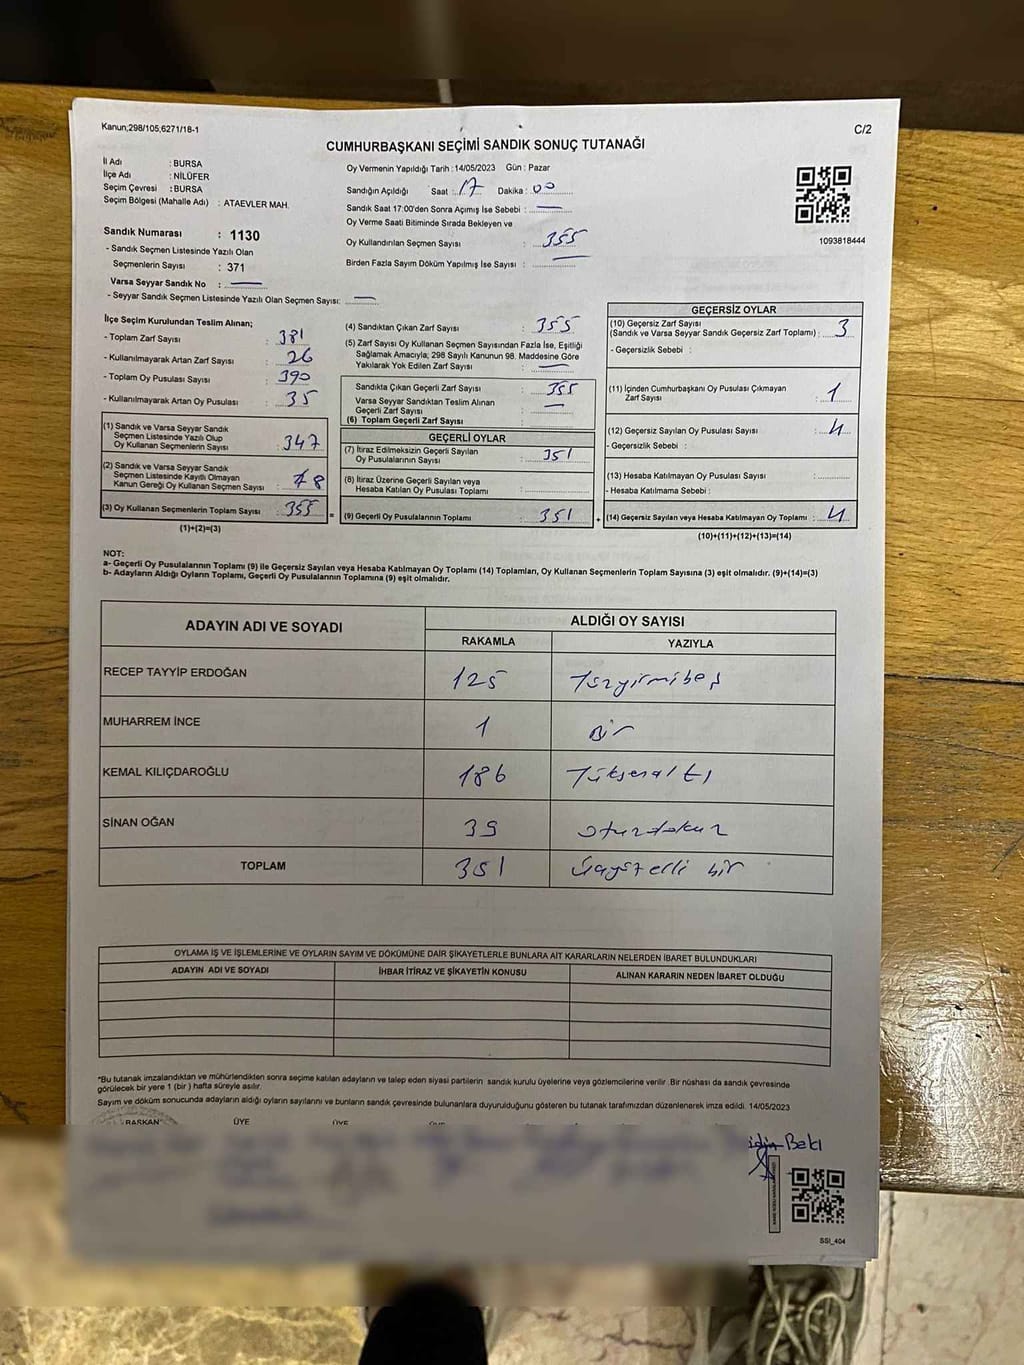 Kanun;298/105,6271/18-1
C/2
CUMHURBAŞKANI SEÇİMİ SANDIK SONUÇ TUTANAĞI
İl Adı : BURSA
İlçe Adı : NİLÜFER
Seçim Çevresi : BURSA
Seçim Bölgesi (Mahalle Adı) : ATAEVLER MAH.
Sandık Numarası : 1130
- Sandık Seçmen Listesinde Yazılı Olan
Seçmenlerin Sayısı : 371
Varsa Seyyar Sandık No :
- Seyyar Sandık Seçmen Listesinde Yazılı Olan Seçmen Sayısı:
Oy Vermenin Yapıldığı Tarih : 14/05/2023 Gün : Pazar
Sandığın Açıldığı Saat : 17 Dakika : 00
Sandık Saat 17:00'den Sonra Açımış İse Sebebi :
Oy Verme Saati Bitiminde Sırada Bekleyen ve
Oy Kullandırılan Seçmen Sayısı : 355
Birden Fazla Sayım Döküm Yapılmış İse Sayısı :
1093818444
İlçe Seçim Kurulundan Teslim Alınan;
- Toplam Zarf Sayısı : 381
- Kullanılmayarak Artan Zarf Sayısı : 26
- Toplam Oy Pusulası Sayısı : 390
- Kullanılmayarak Artan Oy Pusulası : 35
(1) Sandık ve Varsa Seyyar Sandık
Seçmen Listesinde Yazılı Olup
Oy Kullanan Seçmenlerin Sayısı : 347
(2) Sandık ve Varsa Seyyar Sandık
Seçmen Listesinde Kayıtlı Olmayan
Kanun Gereği Oy Kullanan Seçmen Sayısı : 8
(3) Oy Kullanan Seçmenlerin Toplam Sayısı : 355
(1)+(2)=(3)
(4) Sandıktan Çıkan Zarf Sayısı : 355
(5) Zarf Sayısı Oy Kullanan Seçmen Sayısından Fazla İse, Eşitliği
Sağlamak Amacıyla; 298 Sayılı Kanunun 98. Maddesine Göre
Yakılarak Yok Edilen Zarf Sayısı :
Sandıkta Çıkan Geçerli Zarf Sayısı : 355
Varsa Seyyar Sandıktan Teslim Alınan
Geçerli Zarf Sayısı :
(6) Toplam Geçerli Zarf Sayısı :
GEÇERLİ OYLAR
(7) İtiraz Edilmeksizin Geçerli Sayılan
Oy Pusulalarının Sayısı : 351
(8) İtiraz Üzerine Geçerli Sayılan veya
Hesaba Katılan Oy Pusulası Toplamı :
= (9) Geçerli Oy Pusulalarının Toplamı : 351 +
GEÇERSİZ OYLAR
(10) Geçersiz Zarf Sayısı
(Sandık ve Varsa Seyyar Sandık Geçersiz Zarf Toplamı) : 3
- Geçersizlik Sebebi :
(11) İçinden Cumhurbaşkanı Oy Pusulası Çıkmayan
Zarf Sayısı : 1
(12) Geçersiz Sayılan Oy Pusulası Sayısı : 4
- Geçersizlik Sebebi :
(13) Hesaba Katılmayan Oy Pusulası Sayısı :
- Hesaba Katılmama Sebebi :
(14) Geçersiz Sayılan veya Hesaba Katılmayan Oy Toplamı : 4
(10)+(11)+(12)+(13)=(14)
NOT:
a- Geçerli Oy Pusulalarının Toplamı (9) ile Geçersiz Sayılan veya Hesaba Katılmayan Oy Toplamı (14) Toplamları, Oy Kullanan Seçmenlerin Toplam Sayısına (3) eşit olmalıdır. (9)+(14)=(3)
b- Adayların Aldığı Oyların Toplamı, Geçerli Oy Pusulalarının Toplamına (9) eşit olmalıdır.
ADAYIN ADI VE SOYADI ALDIĞI OY SAYISI
RAKAMLA YAZIYLA
RECEP TAYYİP ERDOĞAN 125 Yüzyirmibeş
MUHARREM İNCE 1 Bir
KEMAL KILIÇDAROĞLU 186 Yükseraltı
SİNAN OĞAN 39 otuzdokuz
TOPLAM 351 üçyüzelli bir
OYLAMA İŞ VE İŞLEMLERİNE VE OYLARIN SAYIM VE DÖKÜMÜNE DAİR ŞİKAYETLERLE BUNLARA AİT KARARLARIN NELERDEN İBARET BULUNDUKLARI
ADAYIN ADI VE SOYADI İHBAR İTİRAZ VE ŞİKAYETİN KONUSU ALINAN KARARIN NEDEN İBARET OLDUĞU
*Bu tutanak imzalandıktan ve mühürlendikten sonra seçime katılan adayların ve talep eden siyasi partilerin sandık kurulu üyelerine veya gözlemcilerine verilir. Bir nüshası da sandık çevresinde
görülecek bir yere 1 (bir) hafta süreyle asılır.
Sayım ve döküm sonucunda adayların aldığı oyların sayılarını ve bunların sandık çevresinde bulunanlara duyurulduğunu gösteren bu tutanak tarafımızdan düzenlenerek imza edildi. 14/05/2023
BAŞKAN ÜYE ÜYE ÜYE
Bekı
SSI_404